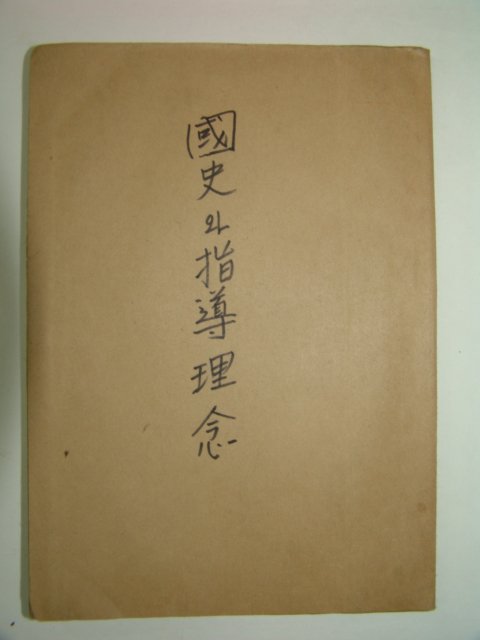 國史와指導理念